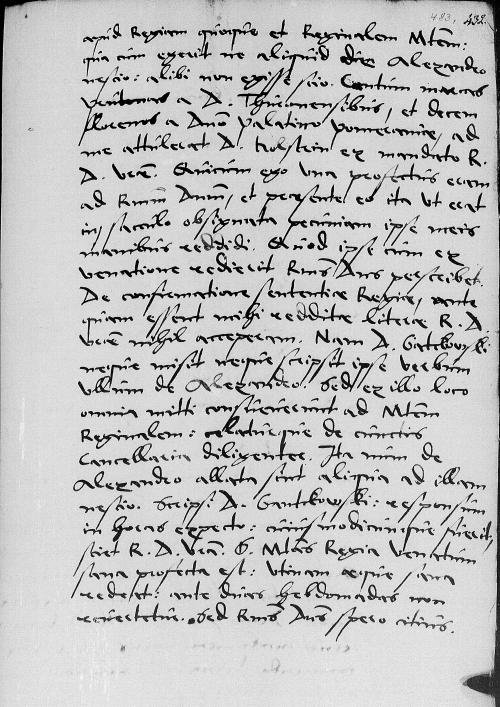 483. 432.
apud Regiam quoque et Reginalem Mtem:
qua cum egerit ne aliquid de Alexandro
nescio: alibi non egisse scio. Centum marcas
a D. Thuronensibus, et decem
florenos a Dno Palatino Pomeraniae, ad
me attulerat D. Holstein ex mandato R.
D. Vrae. Quicum ego una profectus eram
ad Rmum Dnum, et praesente eo ita ut erat
in sacculo obsignata pecuniam ipse meis
manibus reddidi. Quod ipse cum ex
venatione redierit Rmus Dns perscribet.
De confirmatione sententiae Regiae, ante
quam essent mihi redditae literae R. D.
Vrae nihil acceperam. Nam D. Gatckowski
neque misit neque scripsit ipse verbum
ullum de Alexandro. Sed ex illo loco
omnia mitti consueverunt ad Mtem
Reginalem: celatque de cunctis
Cancellaria diligenter. Ita num de
Alexandro allata sint aliqua ad illam
nescio. Scripsi D. Gantckowski: responsum
in horas expecto: cuiusmodicunque fuerit,
sciet R. D. Vra. S. Mtas Regia venatum
sana profecta est: utinam aeque sana
redeat: ante duas hebdomadas non
revertetur. Sed Rmus Dns spero citius.